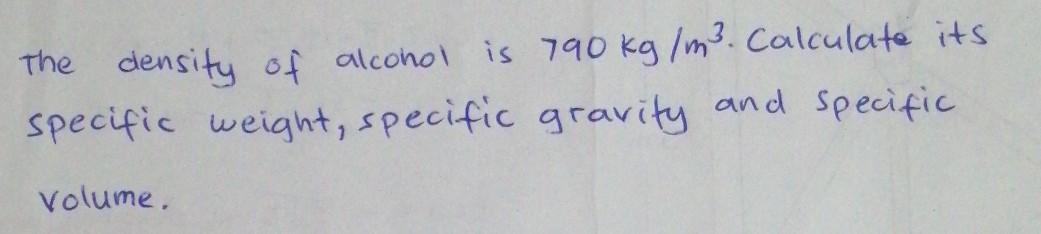 The density of alcohol is 790 kg/m³. Calculate its
specific weight, specific gravity and specific
volume.